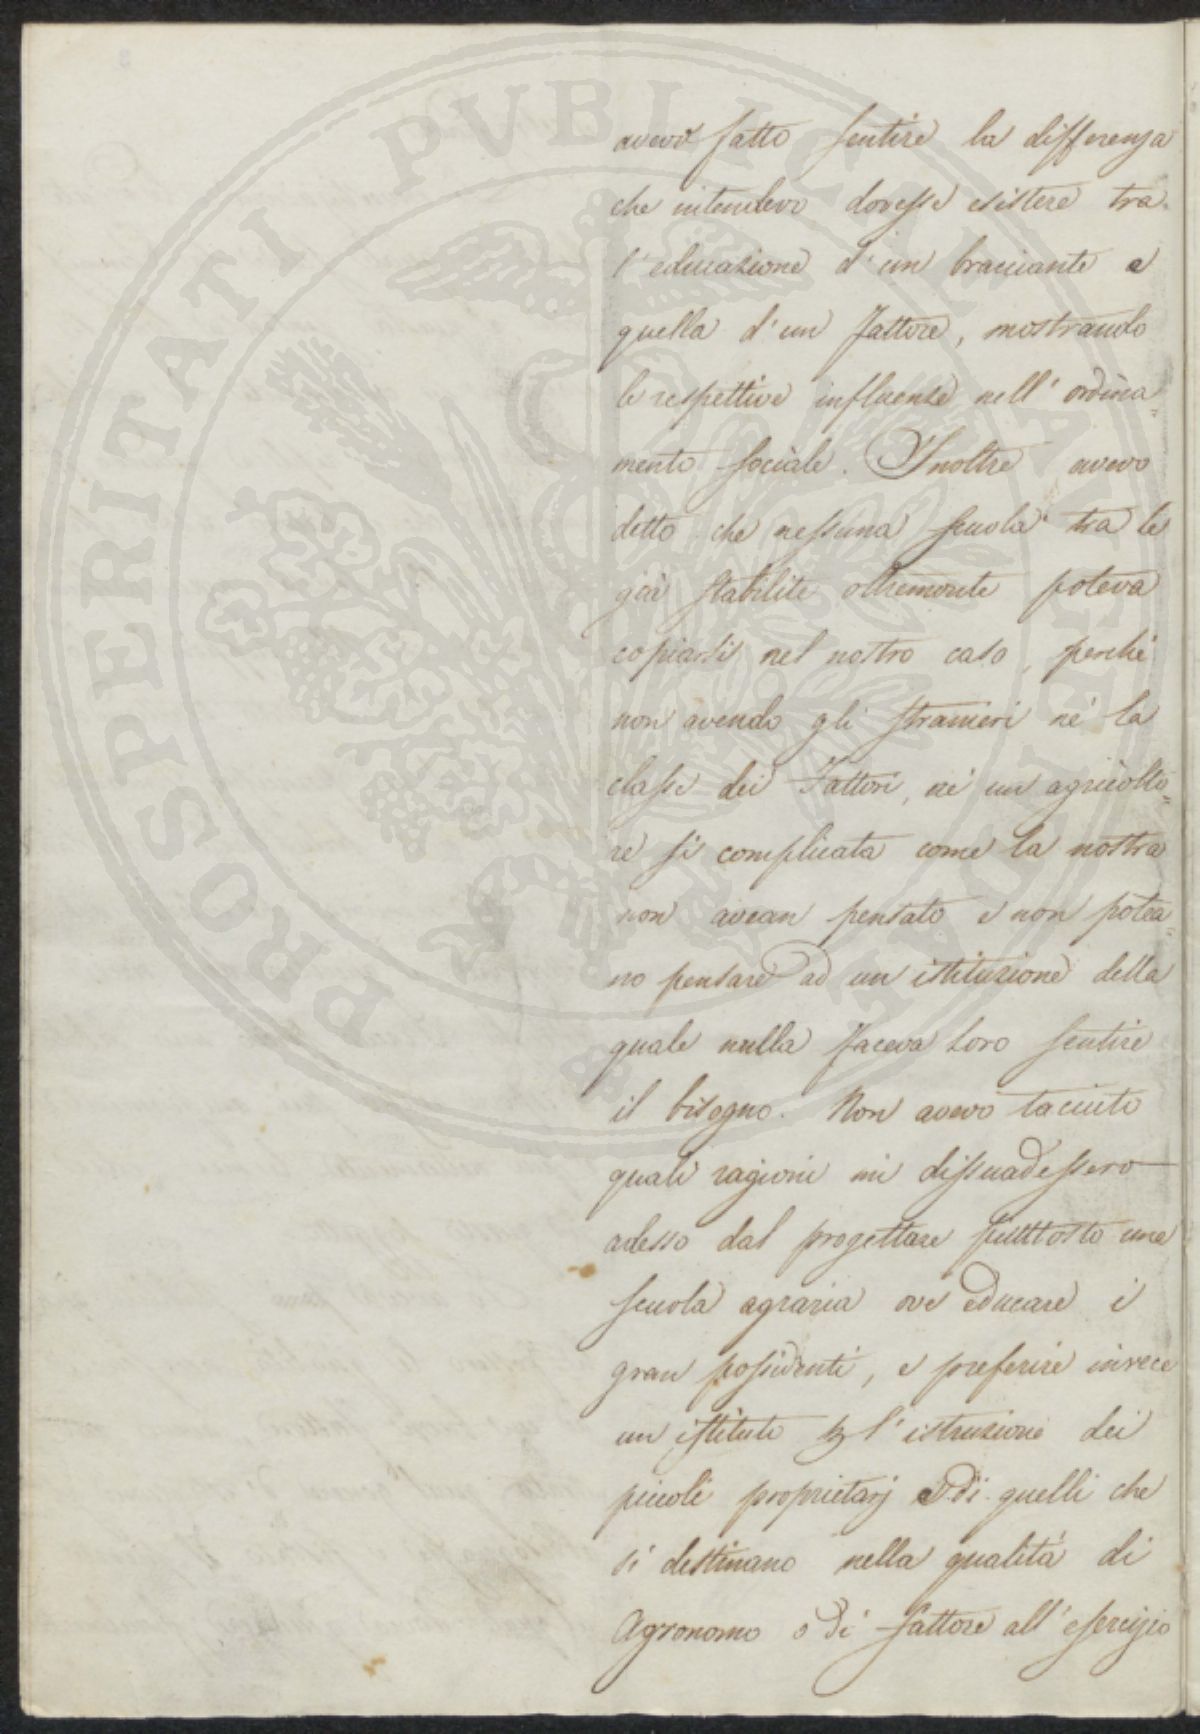 PROSPERITATI PUBLICAE AUGENDAE
avevo fatto sentire la differenza
che intendevo dovesse esistere tra
l'educazione d'un bracciante e
quella d'un fattore, mostrando
le respettive influenze nell'ordina=
mento sociale. Inoltre avevo
detto che nessuna scuola tra le
già stabilite oltremonte poteva
copiarsi nel nostro caso, perchè
non avendo gli stranieri nè la
classe dei Fattori, nè un agricoltu=
re sì complicata come la nostra
non avean pensato e non potea=
no pensare ad un istituzione della
quale nulla faceva loro sentire
il bisogno. Non avevo taciuto
quali ragioni mi dissuadessero
adesso dal progettare piuttosto una
scuola agraria ove educare i
gran possidenti, e preferire invece
un istituto l'istruzione dei
piccoli proprietarj e di quelli che
si destinano nella qualità di
Agronomo o di fattore all'esercizio